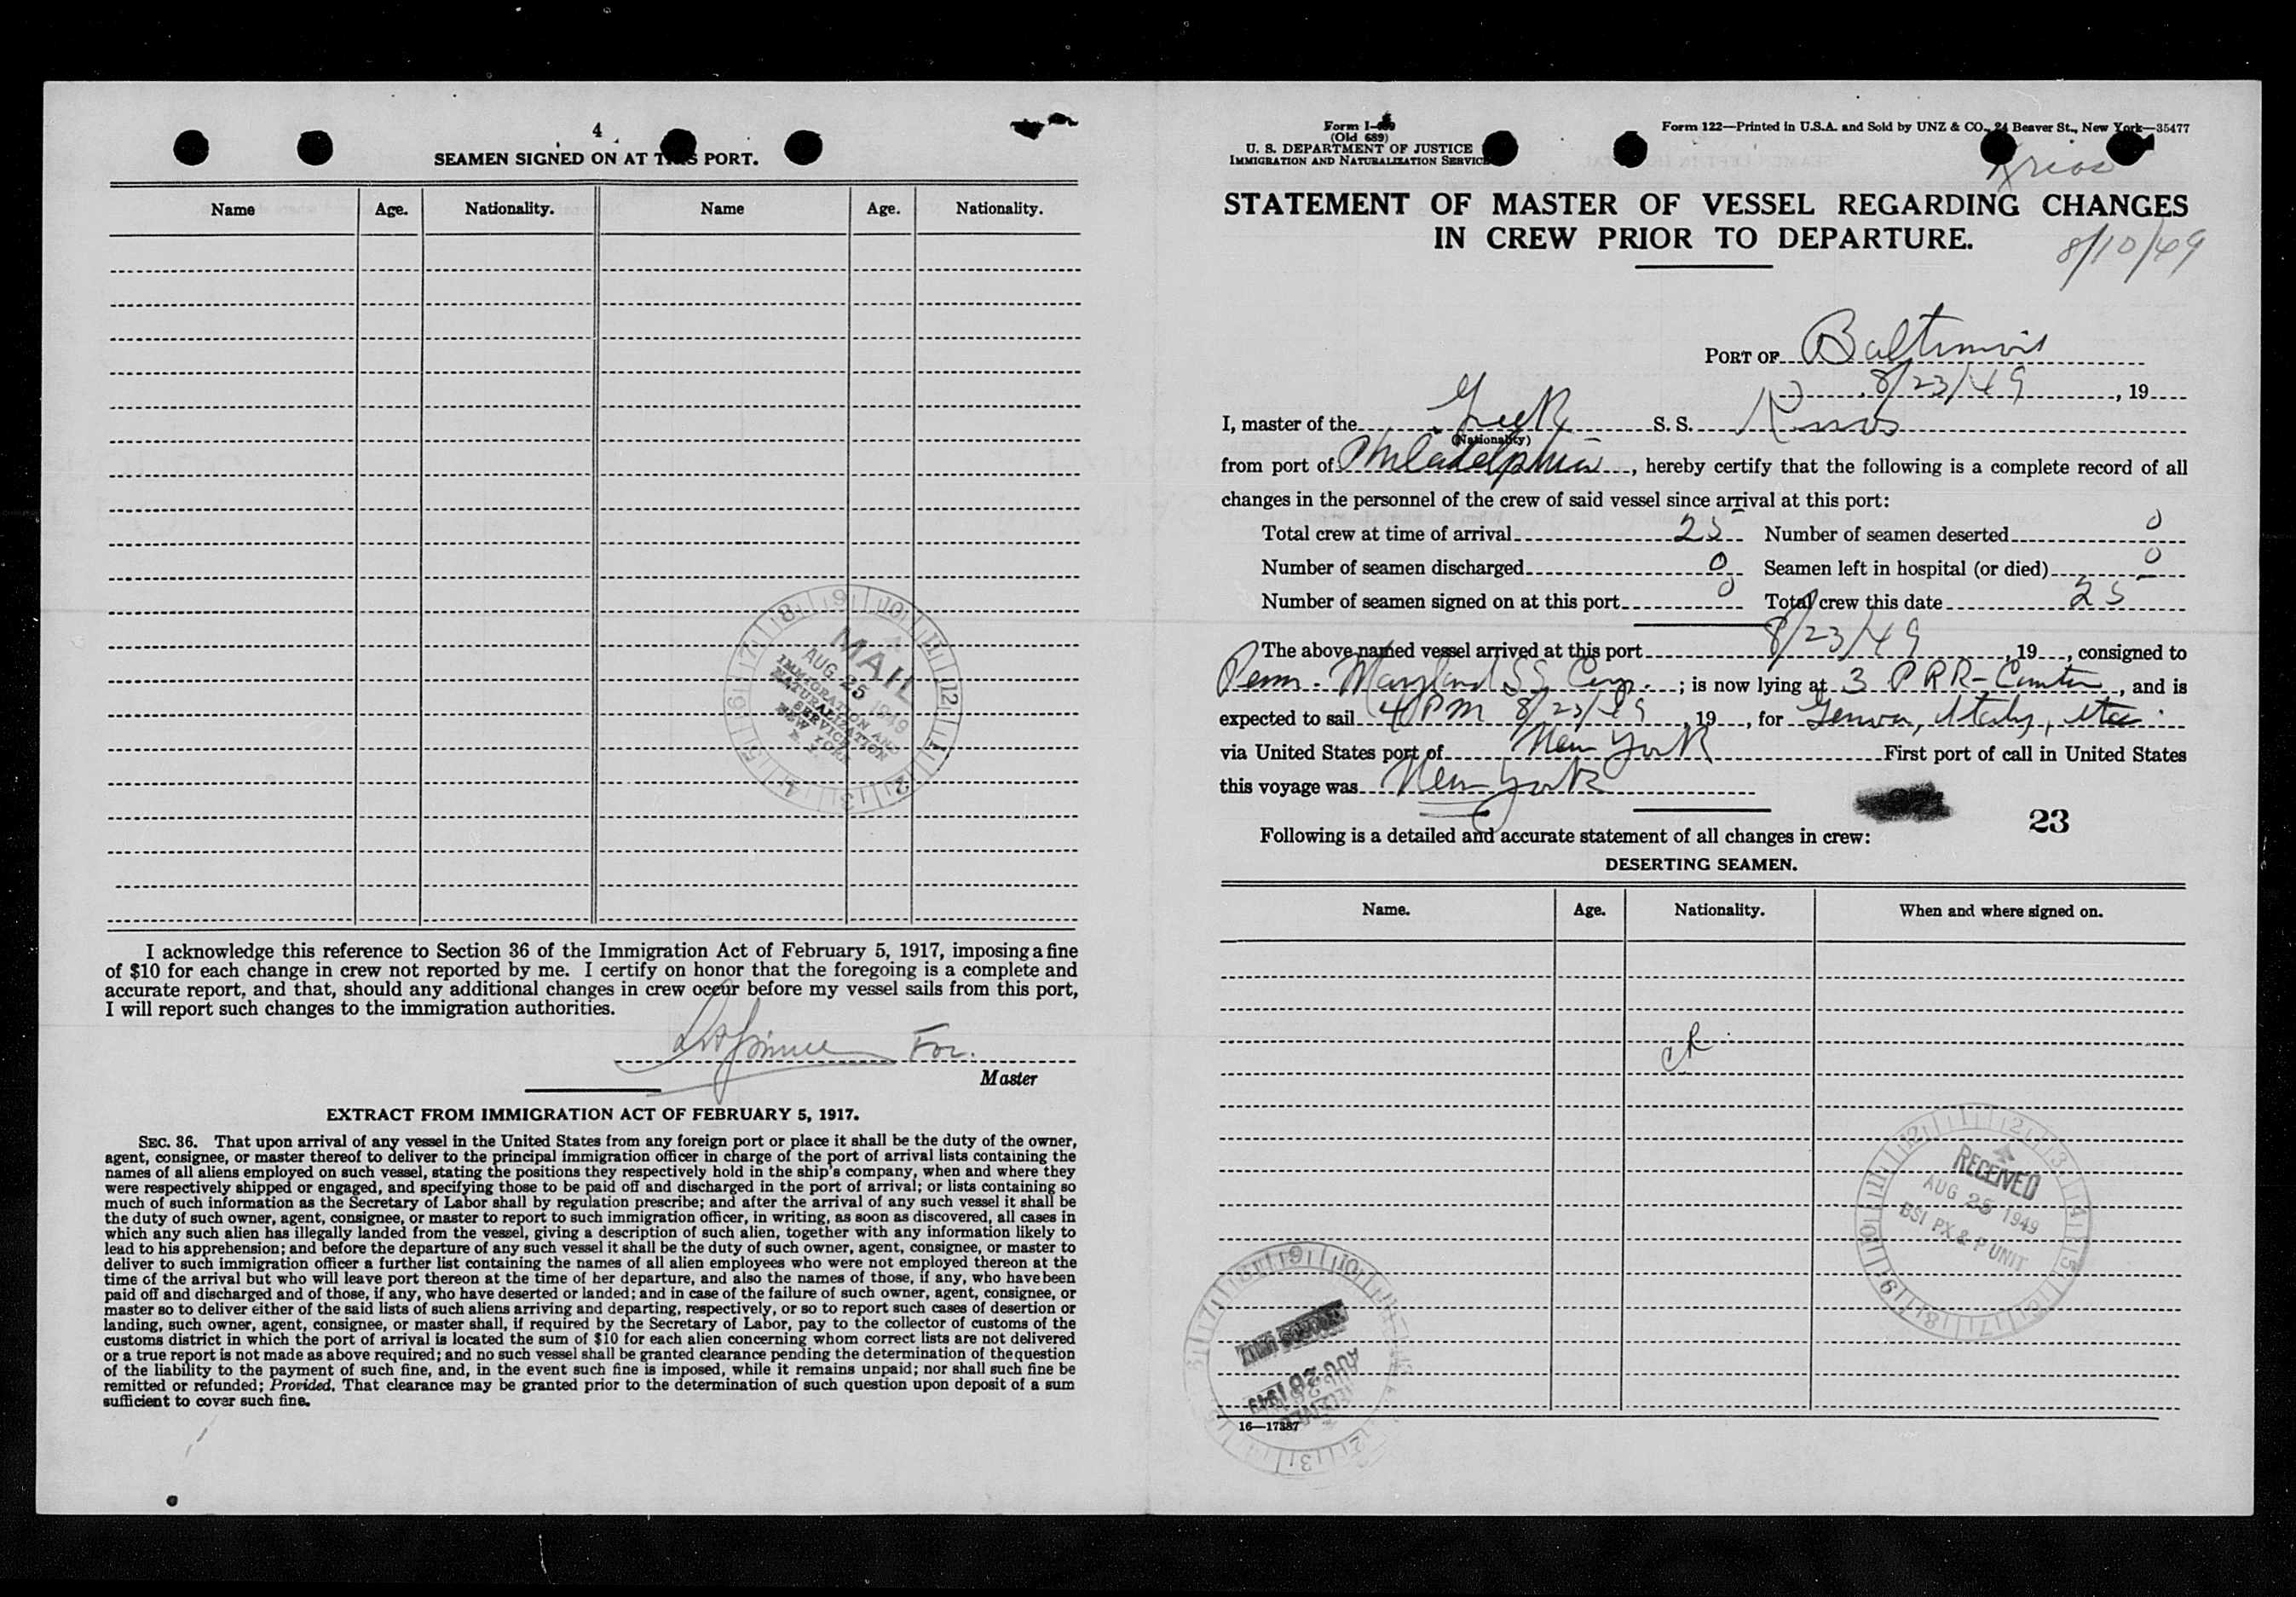 4
SEAMEN SIGNED ON AT THIS PORT.
Name Age. Nationality. Name Age. Nationality.
MAIL
AUG 25 1949
IMMIGRATION AND
NATURALIZATION
SERVICE
NEW YORK
N. Y.
I acknowledge this reference to Section 36 of the Immigration Act of February 5, 1917, imposing a fine
of $10 for each change in crew not reported by me. I certify on honor that the foregoing is a complete and
accurate report, and that, should any additional changes in crew occur before my vessel sails from this port,
I will report such changes to the immigration authorities.
For.
Master
EXTRACT FROM IMMIGRATION ACT OF FEBRUARY 5, 1917.
SEC. 36. That upon arrival of any vessel in the United States from any foreign port or place it shall be the duty of the owner,
agent, consignee, or master thereof to deliver to the principal immigration officer in charge of the port of arrival lists containing the
names of all aliens employed on such vessel, stating the positions they respectively hold in the ship's company, when and where they
were respectively shipped or engaged, and specifying those to be paid off and discharged in the port of arrival; or lists containing so
much of such information as the Secretary of Labor shall by regulation prescribe; and after the arrival of any such vessel it shall be
the duty of such owner, agent, consignee, or master to report to such immigration officer, in writing, as soon as discovered, all cases in
which any such alien has illegally landed from the vessel, giving a description of such alien, together with any information likely to
lead to his apprehension; and before the departure of any such vessel it shall be the duty of such owner, agent, consignee, or master to
deliver to such immigration officer a further list containing the names of all alien employees who were not employed thereon at the
time of the arrival but who will leave port thereon at the time of her departure, and also the names of those, if any, who have been
paid off and discharged and of those, if any, who have deserted or landed; and in case of the failure of such owner, agent, consignee, or
master so to deliver either of the said lists of such aliens arriving and departing, respectively, or so to report such cases of desertion or
landing, such owner, agent, consignee, or master shall, if required by the Secretary of Labor, pay to the collector of customs of the
customs district in which the port of arrival is located the sum of $10 for each alien concerning whom correct lists are not delivered
or a true report is not made as above required; and no such vessel shall be granted clearance pending the determination of the question
of the liability to the payment of such fine, and, in the event such fine is imposed, while it remains unpaid; nor shall such fine be
remitted or refunded; Provided, That clearance may be granted prior to the determination of such question upon deposit of a sum
sufficient to cover such fine.
Form I-
(Old 689)
U. S. DEPARTMENT OF JUSTICE
IMMIGRATION AND NATURALIZATION SERVICE
Form 122—Printed in U.S.A. and Sold by UNZ & CO., 24 Beaver St., New York—35477
STATEMENT OF MASTER OF VESSEL REGARDING CHANGES
IN CREW PRIOR TO DEPARTURE.
8/10/49
PORT OF Baltimore
8/23/49, 19
I, master of the Greek S. S.
(Nationality)
from port of Philadelphia, hereby certify that the following is a complete record of all
changes in the personnel of the crew of said vessel since arrival at this port:
Total crew at time of arrival 25 Number of seamen deserted 0
Number of seamen discharged 0 Seamen left in hospital (or died) 0
Number of seamen signed on at this port 0 Total crew this date 25
The above named vessel arrived at this port 8/23/49, 19, consigned to
Penn. Maryland SS Corp.; is now lying at 3 PRR-Canton, and is
expected to sail 4 PM 8/23/49, 19, for Genoa, Italy, etc.
via United States port of New York First port of call in United States
this voyage was New York
23
Following is a detailed and accurate statement of all changes in crew:
DESERTING SEAMEN.
Name. Age. Nationality. When and where signed on.
RECEIVED
AUG 25 1949
BSI PX & P UNIT
16—17387